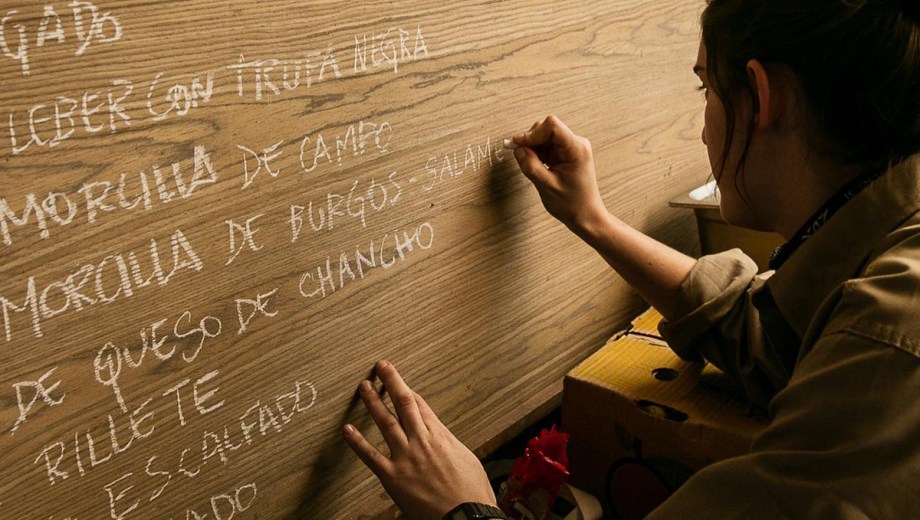 GADO
LEBER CON TRUFA NEGRA
MORCILLA DE CAMPO
MORCILLA DE BURGOS - SALAME
DE QUESO DE CHANCHO
DE RILLETE
ESCALFADO
ADO